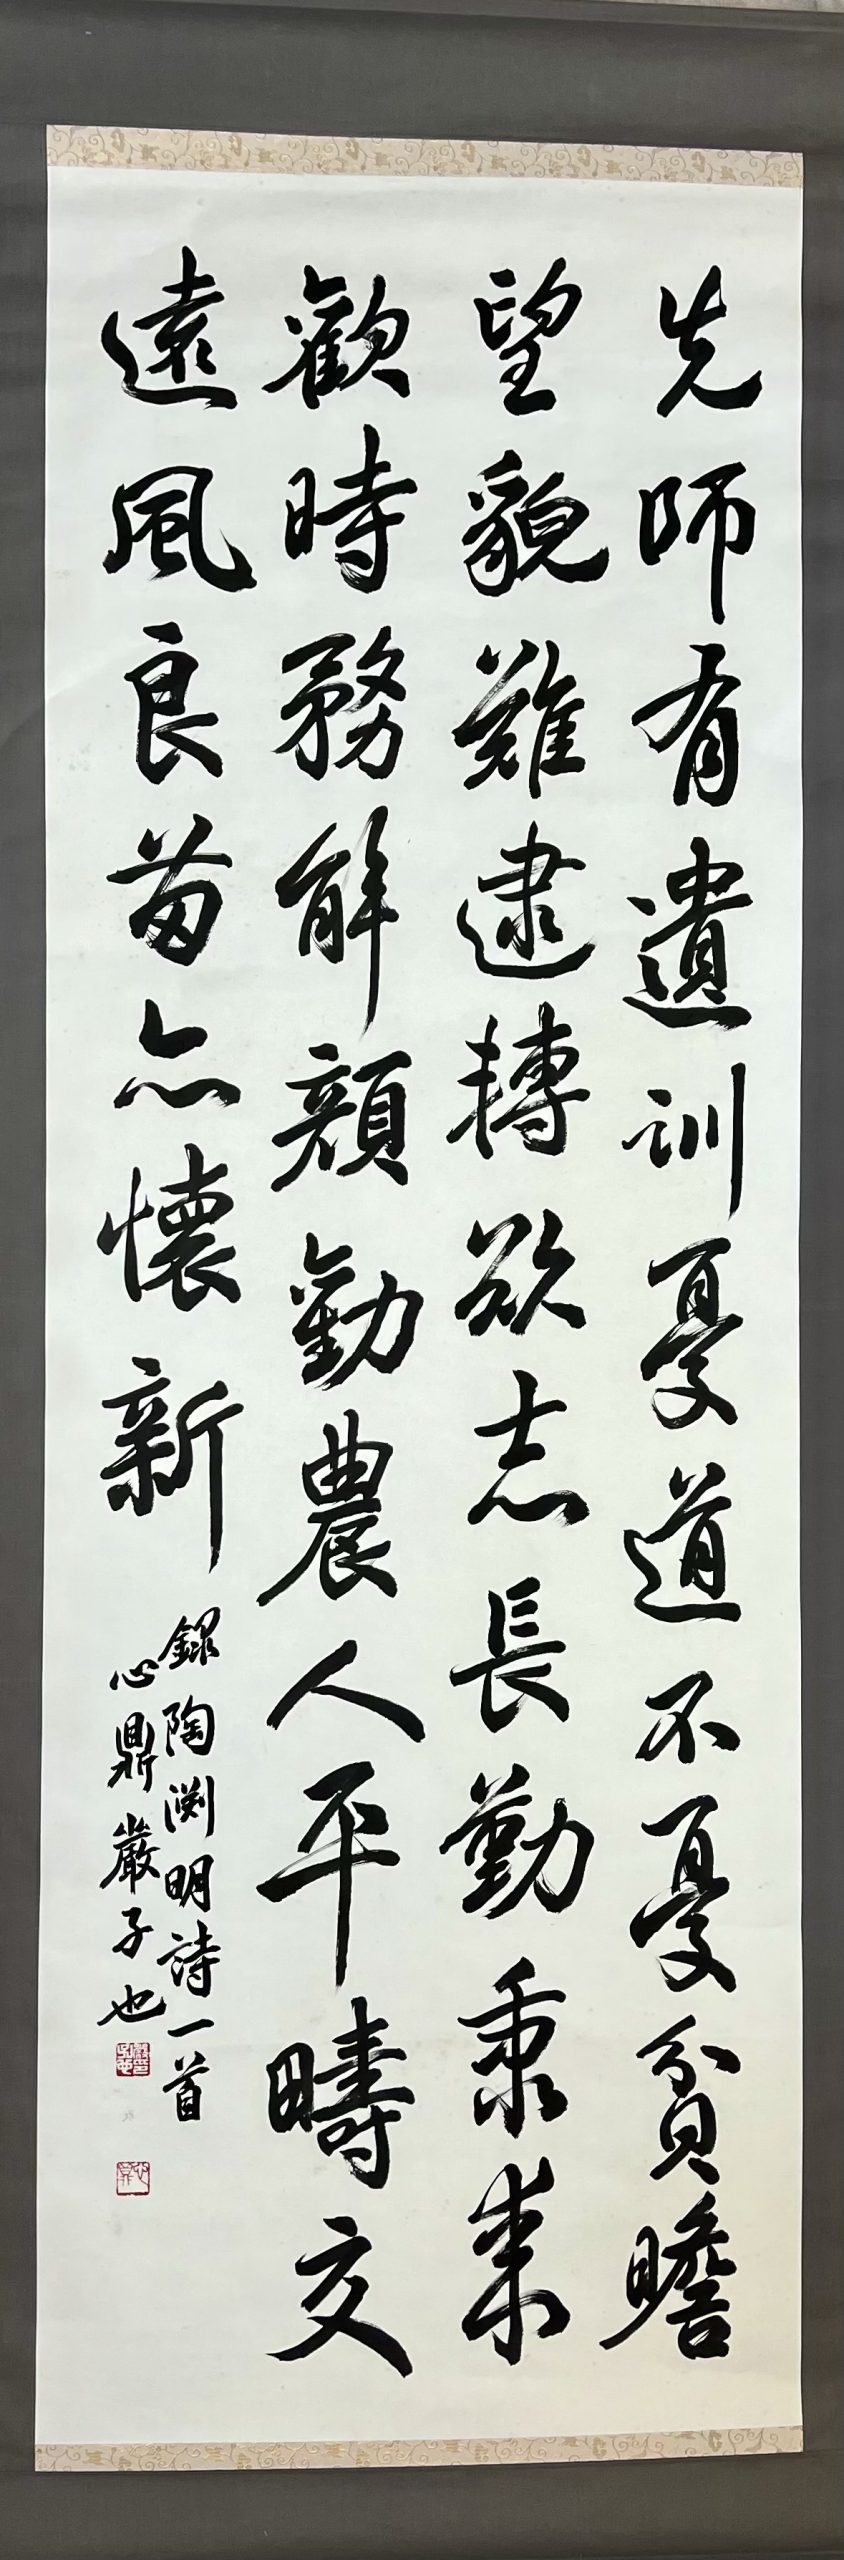 先師有遺訓憂道不憂貧瞻
望貌難逮轉欲志長勤秉耒
歡時務解顏勸農人平疇交
遠風良苗亦懷新
錄陶渕明詩一首
心鼎嚴子也